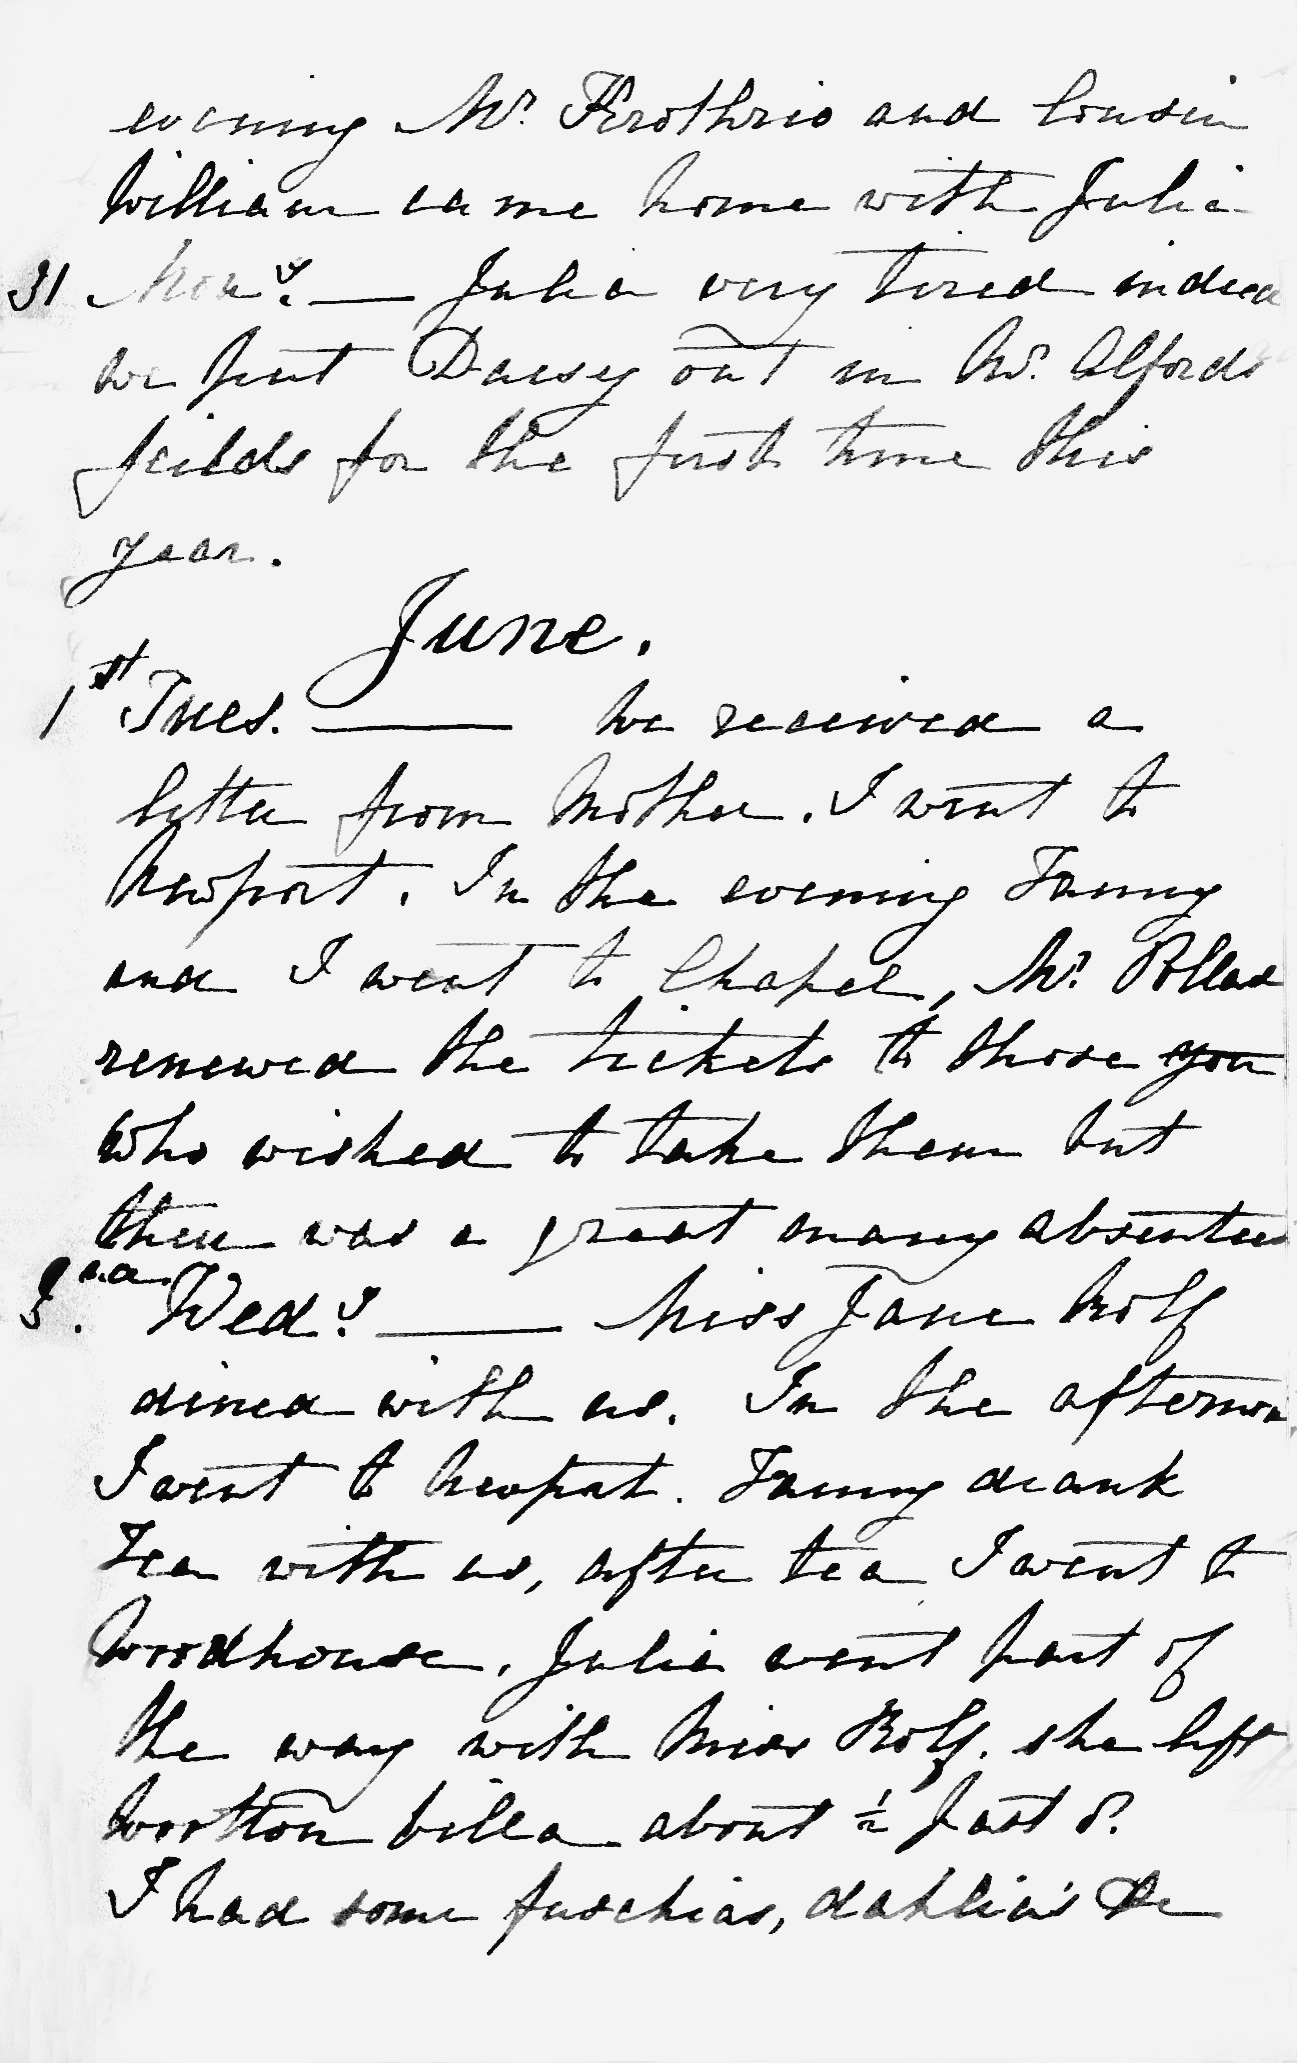 evening Mr. and Cousin
William came home with Julia
31 Mony. — Julia very tired indeed
we put Daisy out in Mr. Alfords
feilds for the first time this
year.
June.
1st Tues. — We received a
letter from Mother. I went to
Newport. In the evening Fanny
and I went to Chapel, Mr. Pollad
renewed the tickets to those you
who wished to take them but
there was a great many absentees
nd. Wedy. — Miss Jane Rolf
dined with us. In the afternoon
I went to Newport. Fanny drank
Tea with us, after tea I went to
Woodhouse. Julia went part of
the way with Miss Rolf. she left
Wootton Villa about ½ past 8.
I had some fuschias, dahlia's &c